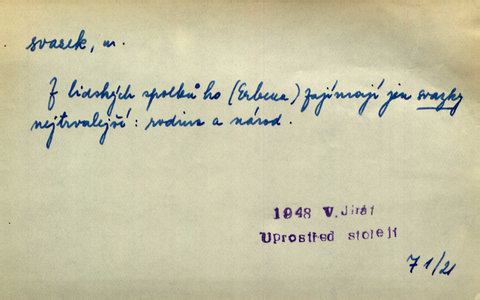 svazek, m.
Z lidských spolků ho (Erbena) zajímají jen svazky
nejtrvalejší: rodina a národ.
1948 V. Jirát
Uprostřed století
71/21